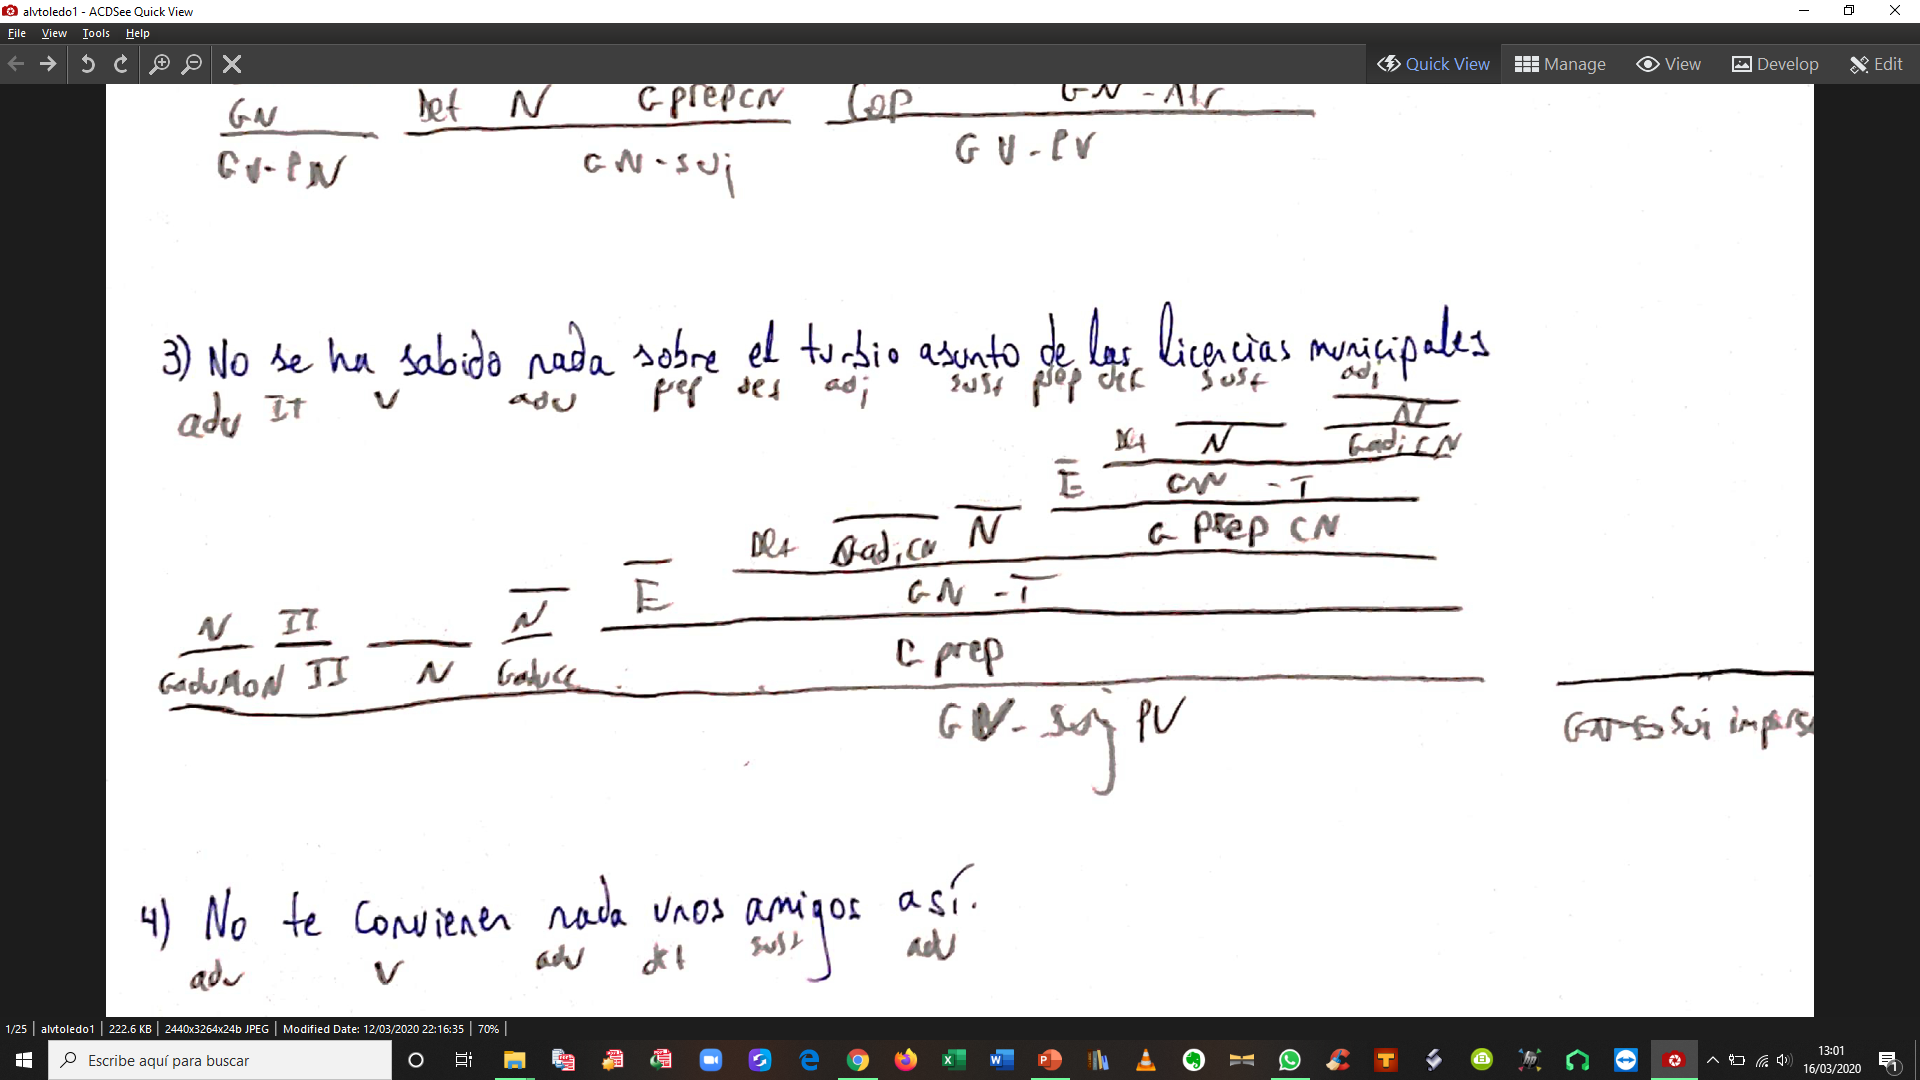 alvtoledo1 - ACDSee Quick View
File View Tools Help
Quick View Manage View Develop Edit
GN Det N GprepCN Cop GN-Atr
GV-PN GN-suj GV-PV
3) No se ha sabido nada sobre el turbio asunto de las licencias municipales
adv IT V adv prep det adj sust prep det sust adj
N
Det N GadjCN
E GN -T
Det GadjCN N G prep CN
E GN -T
N II N
GadvMON II N GadvCC G prep
GV- Suj PV Suj
4) No te convienen nada unos amigos así.
adv V adv det sust adv
1/25 alvtoledo1 222.6 KB 2440x3264x24b JPEG Modified Date: 12/03/2020 22:16:35 70%
Escribe aquí para buscar
13:01
16/03/2020
1